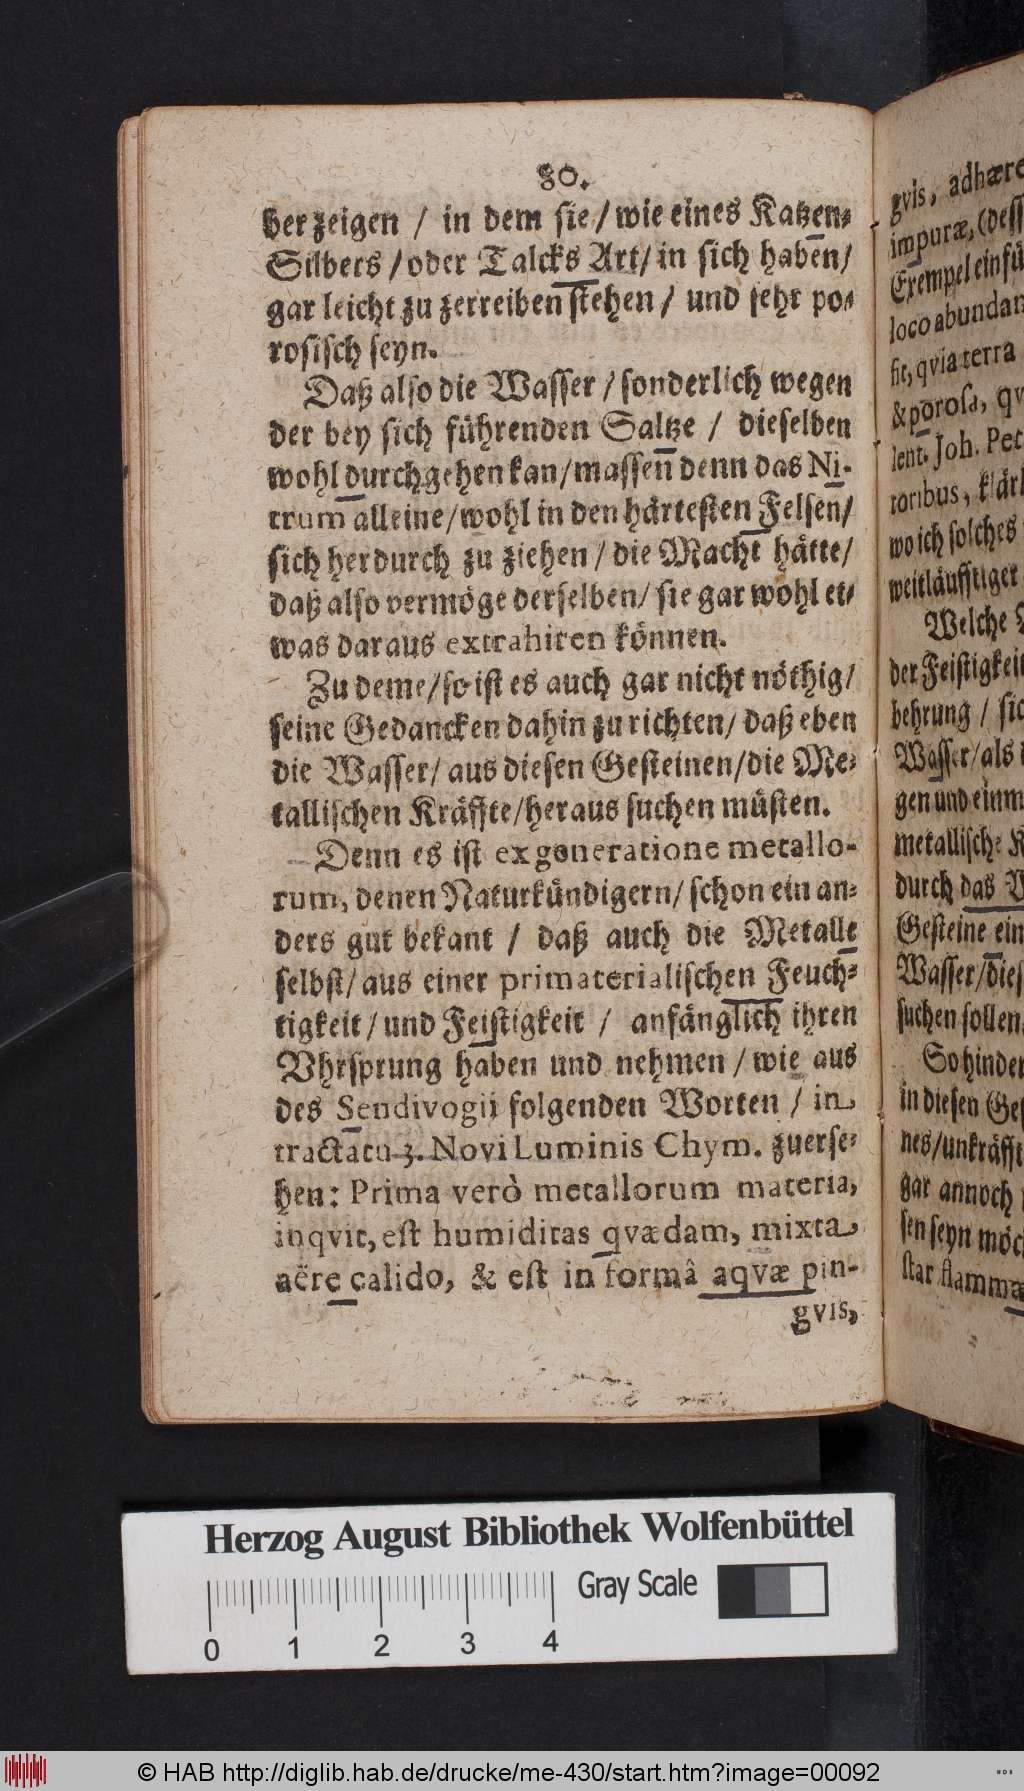 80.
her zeigen / in dem sie / wie eines Katzen-
Silbers / oder Talcks Art / in sich haben /
gar leicht zu zerreiben stehen / und sehr po-
rosisch seyn.
Daß also die Wasser / sonderlich wegen
der bey sich führenden Saltze / dieselben
wohl durchgehen kan / massen denn das Ni-
trum alleine / wohl in den härtesten Felsen /
sich herdurch zu ziehen / die Macht hätte /
daß also vermöge derselben / sie gar wohl et-
was daraus extrahiren können.
Zu deme / so ist es auch gar nicht nöthig /
seine Gedancken dahin zu richten / daß eben
die Wasser / aus diesen Gesteinen / die Me-
tallischen Kräffte / heraus suchen müsten.
Denn es ist ex generatione metallo-
rum, denen Naturkündigern / schon ein an-
ders gut bekant / daß auch die Metalle
selbst / aus einer primaterialischen Feuch-
tigkeit / und Feistigkeit / anfänglich ihren
Vhrsprung haben und nehmen / wie aus
des Sendivogii folgenden Worten / in
tractatu 3. Novi Luminis Chym. zuerse-
hen: Prima verò metallorum materia,
inqvit, est humiditas qvædam, mixta
aëre calido, & est in formâ aqvæ pin-
gvis,
gvis, adhære
impuræ, (dess
Exempel einfü
loco abundan
sit, qvia terra
& porosa, qv
lent. Joh. Pet
toribus, klärl
wo ich solches
weitläufftiger
Welche
der Feistigkeit
behrung / sic
Wasser / als
gen und einm
metallische K
durch das W
Gesteine ein
Wasser / dies
suchen sollen
So hinder
in diesen Ges
nes / unkräfft
gar annoch
sen seyn möc
star flammæ
Herzog August Bibliothek Wolfenbüttel
Gray Scale
0 1 2 3 4
© HAB http://diglib.hab.de/drucke/me-430/start.htm?image=00092